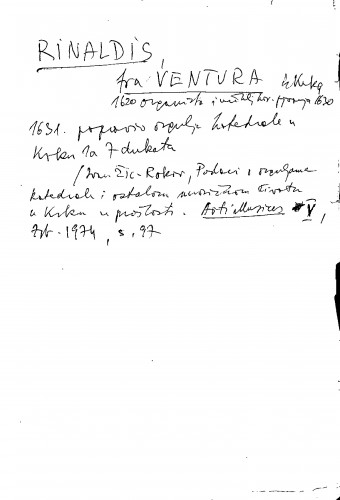 RINALDIS,
fra VENTURA iz Krka
1620 organist i 1630
1631. popravio orgulje katedrale u
Krku za 7 dukata
/Ivan Žic-Rokov, Podaci o orguljama
katedrale i ostalom muzičkom životu
u Krku u prošlosti. Arti Musices V,
Zgb. 1974, s. 97